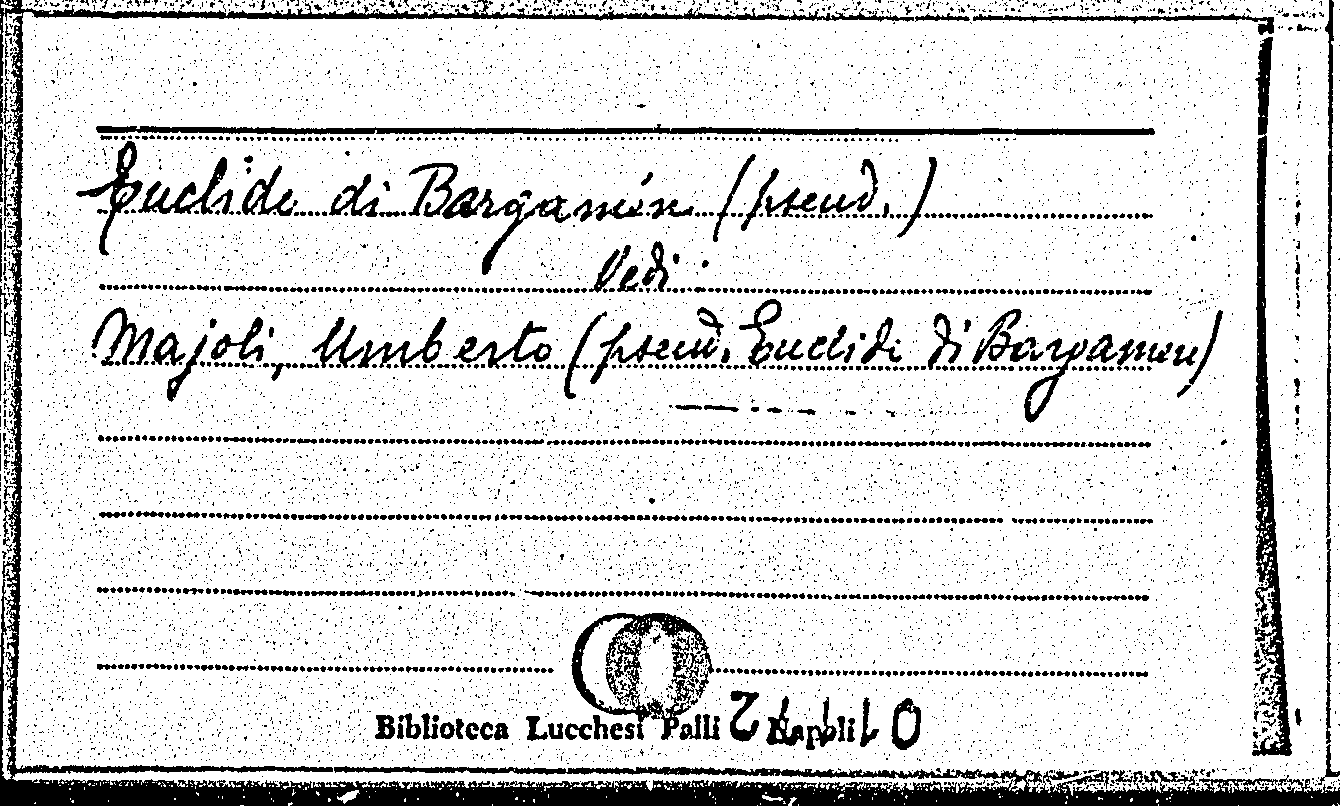 Euclide di Bargamen (pseud.)
Vedi
Majoli, Umberto (pseud. Euclide di Bargamen)
Biblioteca Lucchesi Palli Napoli